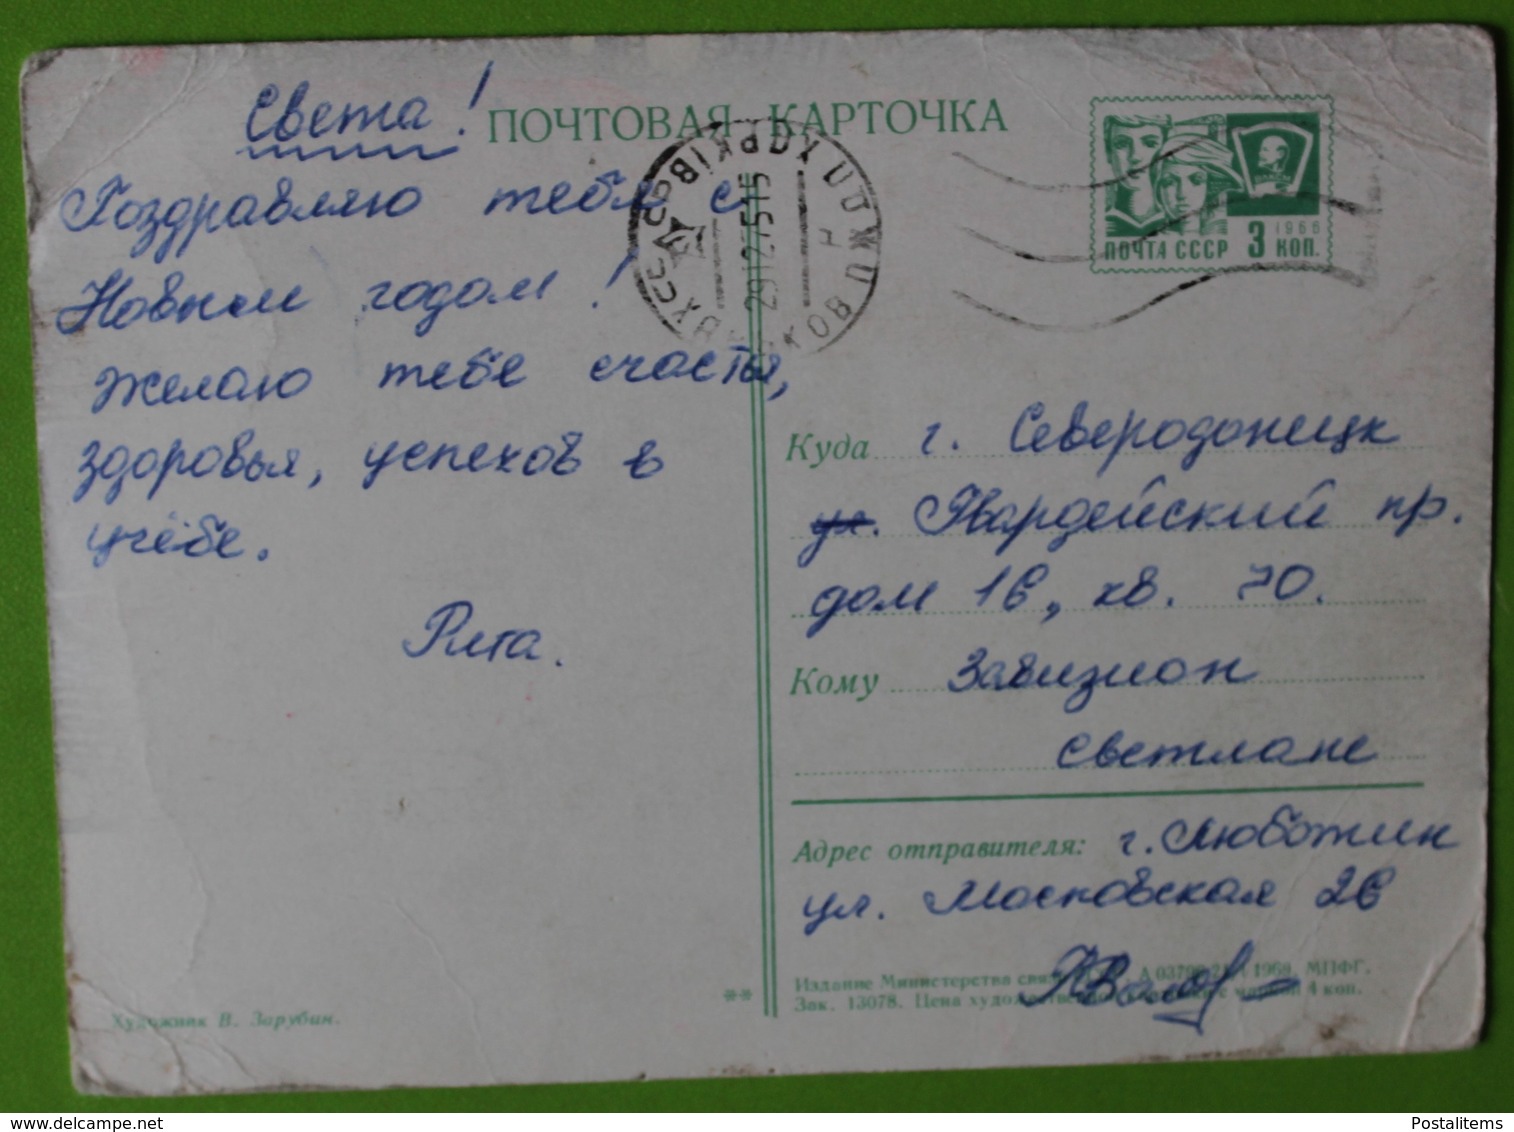 Света!
ПОЧТОВАЯ КАРТОЧКА
Поздравляю тебя с
Новым годом!
Желаю тебе счастья,
здоровья, успехов в
учёбе.
Рита.
ПОЧТА СССР 3 КОП.
1966
ХАРКІВ
29 12 75 15
Куда г. Северодонецк
ул. Гвардейский пр.
дом 16, кв. 70.
Кому Завизион
Светлане
Адрес отправителя: г. Люботин
ул. Московская 26
Издание Министерства связи 1969. МПФГ.
Зак. 13078. Цена 4 коп.
**
Художник В. Зарубин.
Postalitems